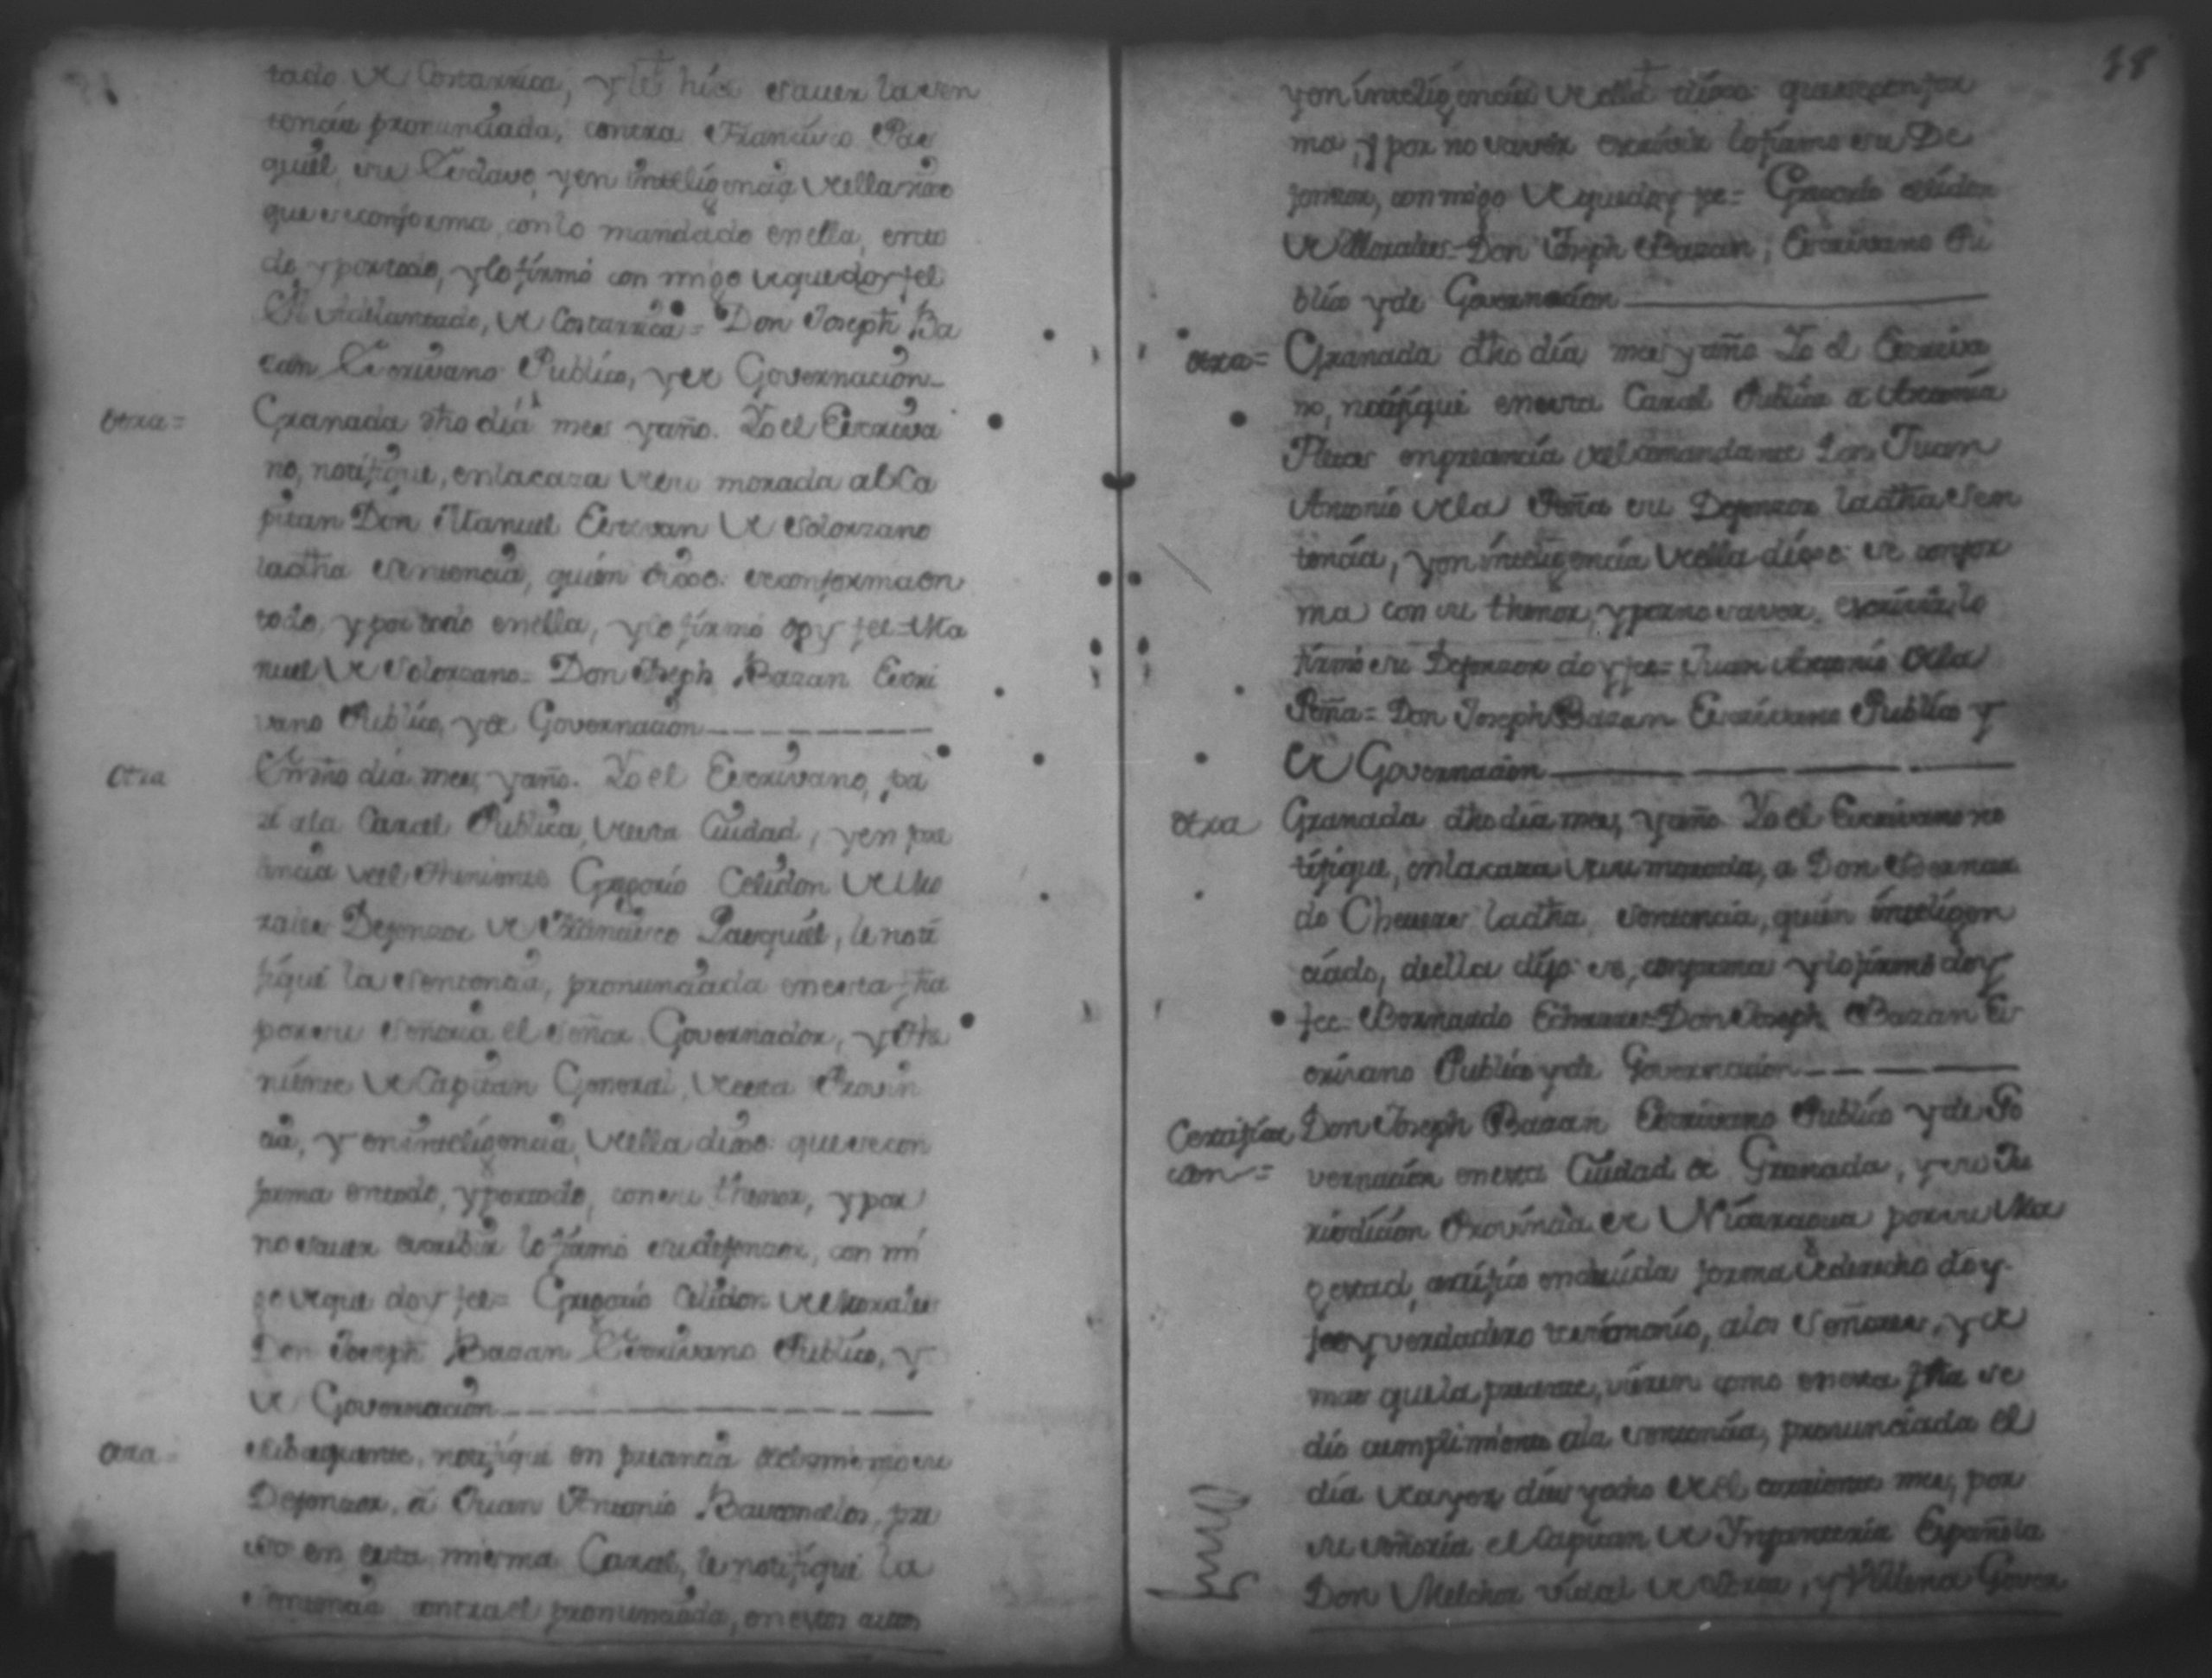 tado de Costarrica, y le hice sauer la sen
tencia pronunciada, contra Francisco Pas
qual su Esclavo, y en inteligencia de ella dixo
que se conforma, con lo mandado en ella, en to
do y por todo, y lo firmó con migo de que doy fee
El Adelantado, de Costarrica = Don Joseph Ba
zan Escrivano Publico, y de Governacion
Otra = Granada dho dia mes y año. Yo el Escriva
no, notifique, en la caza de su morada al Ca
pitan Don Manuel Estevan de Solorzano
la dha sentencia, quien dixo: se conforma en
todo, y por todo en ella, y lo firmó doy fee = Ma
nuel de Solorzano = Don Joseph Bazan Escri
vano Publico, y de Governacion
Otra En dho dia mes, y año. Yo el Escrivano, pa
sé a la Carzel Publica, de esta Ciudad, y en pre
sencia del theniente Gregorio Celidon de Mo
rales Defensor de Francisco Pasqual, le noti
fiqué la sentencia, pronunciada en esta fha
por su Señoria el Señor Governador, y the
niente de Capitan General, de esta Provin
cia, y en inteligencia, de ella dixo: que se con
forma en todo, y por todo, con su thenor, y por
no sauer escribir lo firmó su defensor, con mi
go de que doy fee = Gregorio Celidon de Morales
Don Joseph Bazan Escrivano Publico, y
de Governacion
Otra = notifiqué en presencia del mismo su
Defensor, á Juan Antonio pre
so en esta misma Carzel, le notifiqué la
sentencia contra el pronunciada, en estos autos
38
y en inteligencia de ella dixo: que se confor
ma, y por no saver escrivir lo firmo su De
fensor, con migo de que doy fee = Gregorio Celidon
de Morales = Don Joseph Bazan, Escrivano Pu
blico y de Governacion
Otra = Granada dho dia mes y año Yo el Escriva
no, notifiqué en esta Carzel Publica a
en presencia del comandante Don Juan
Antonio de la Peña su Defensor la dha sen
tencia, y en inteligencia de ella dixo: se confor
ma con su thenor, y por no saver, escrivir lo
firmó su Defensor doy fee = Juan Antonio de la
Peña = Don Joseph Bazan Escrivano Publico y
de Governacion
Otra Granada dho dia mes, y año Yo el Escrivano no
tifiqué, en la caza de su morada, a Don Bernar
do la dha sentencia, quien inteligen
ciado, de ella dijo: se, conforma y lo firmó doy
fee = Bernardo = Don Joseph Bazan Es
crivano Publico y de Governacion
Certifica
cion = Don Joseph Bazan Escrivano Publico y de Go
vernacion en esta Ciudad de Granada, y su Ju
risdicion Provincia de Nicaragua por su Ma
gestad, certifico en devida forma de derecho doy
fee y verdadero testimonio, a los Señores, y de
mas que la presente, vieren como en esta fha se
dio cumplimiento a la sentencia, pronunciada el
dia de ayer dies y ocho de el corriente mes, por
su señoria el Capitan de Infanteria Española
Don Melchor Vidal de Lorca, y Villena Gover